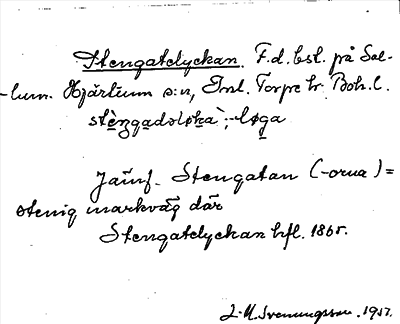 Stengatelyckan. F.d. bst. på Sal-
-lum. Hjärtum s:n, Inl. Torpe hr. Boh. l.
stèŋgadəløka ; -løga
Jämf. Stengatan (-orna) =
stenig markväg där
Stengatelyckan hfl. 1865.
J. M. Svenungsson. 1917.